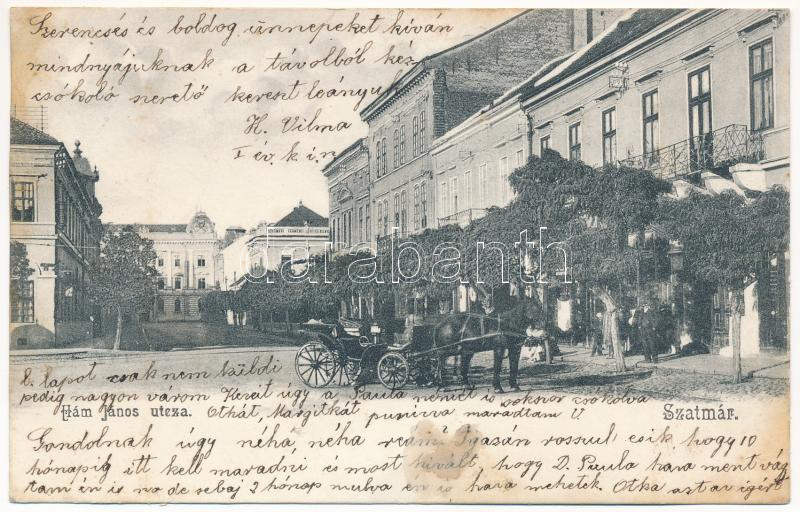 Szerencsés és boldog ünnepeket kíván
mindnyájuknak a távolból kéz
csókoló szerető keresztleányuk
H. Vilma
I év. k. i. n.
darabanth.com
b. lapot csak nem küldi
pedig nagyon várom Kéreit úgy a Paula nénit is sokszor csókolva
Hám János utcza.
Othát, Margitkát puszizva maradtam
Szatmár.
Gondolnak úgy néhá, néha reám? Igazán rosszul esik, hogy 10
hónapig itt kell maradni és most kivált, hogy D. Paula haza ment vág
tam én is no de sebaj 2 hónap mulva én is haza mehetek. Otka azt az ígért